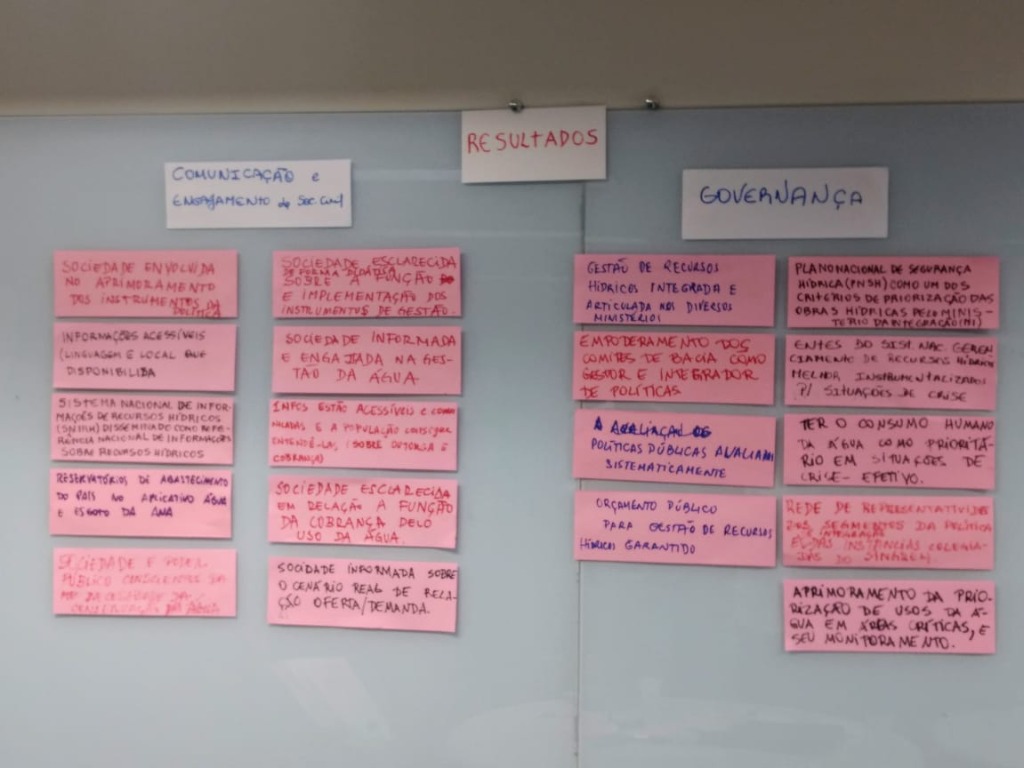 RESULTADOS
COMUNICAÇÃO e
ENGAJAMENTO da Soc. Civil
SOCIEDADE ENVOLVIDA
NO APRIMORAMENTO
DOS INSTRUMENTOS DA
POLÍTICA
INFORMAÇÕES ACESSÍVEIS
(LINGUAGEM E LOCAL QUE
DISPONIBILIZA
SISTEMA NACIONAL DE INFOR-
MAÇÕES DE RECURSOS HÍDRICOS
(SNIRH) DISSEMINADO COMO REFE-
RÊNCIA NACIONAL DE INFORMAÇÕES
SOBRE RECURSOS HÍDRICOS
RESERVATÓRIOS DE ABASTECIMENTO
DO PAÍS NO APLICATIVO ÁGUA
E ESGOTO DA ANA
SOCIEDADE E PODER
PÚBLICO CONSCIENTES DA
DA ÁGUA
SOCIEDADE ESCLARECIDA
DE FORMA DIDÁTICA
SOBRE A FUNÇÃO
E IMPLEMENTAÇÃO DOS
INSTRUMENTOS DE GESTÃO.
SOCIEDADE INFORMADA
E ENGAJADA NA GES-
TÃO DA ÁGUA
INFOS ESTÃO ACESSÍVEIS E
E A POPULAÇÃO CONSEGUE
ENTENDÊ-LAS (SOBRE OUTORGA E
COBRANÇA)
SOCIEDADE ESCLARECIDA
EM RELAÇÃO À FUNÇÃO
DA COBRANÇA PELO
USO DA ÁGUA.
SOCIDADE INFORMADA SOBRE
O CENÁRIO REAL DE RELA-
ÇÃO OFERTA/DEMANDA.
GOVERNANÇA
GESTÃO DE RECURSOS
HÍDRICOS INTEGRADA E
ARTICULADA NOS DIVERSOS
MINISTÉRIOS
EMPODERAMENTO DOS
COMITÊS DE BACIA COMO
GESTOR E INTEGRADOR
DE POLÍTICAS
POLÍTICAS PÚBLICAS AVALIADAS
SISTEMATICAMENTE
ORÇAMENTO PÚBLICO
PARA GESTÃO DE RECURSOS
HÍDRICOS GARANTIDO
PLANO NACIONAL DE SEGURANÇA
HÍDRICA (PNSH) COMO UM DOS
CRITÉRIOS DE PRIORIZAÇÃO DAS
OBRAS HÍDRICAS PELO MINIS-
TÉRIO DA INTEGRAÇÃO (MI)
ENTES DO SIST. NAC. GEREN-
CIAMENTO DE RECURSOS HÍDRICOS
MELHOR INSTRUMENTALIZADOS
P/ SITUAÇÕES DE CRISE
TER O CONSUMO HUMANO
DA ÁGUA COMO PRIORITÁ-
RIO EM SITUAÇÕES DE
CRISE - EFETIVO.
REDE DE REPRESENTATIVIDADE
DOS SEGMENTOS DA POLÍTICA
E INTEGRAÇÃO
INSTÂNCIAS COLEGIA-
DAS DO SINGREH.
APRIMORAMENTO DA PRIO-
RIZAÇÃO DE USOS DA Á-
GUA EM ÁREAS CRÍTICAS, E
SEU MONITORAMENTO.